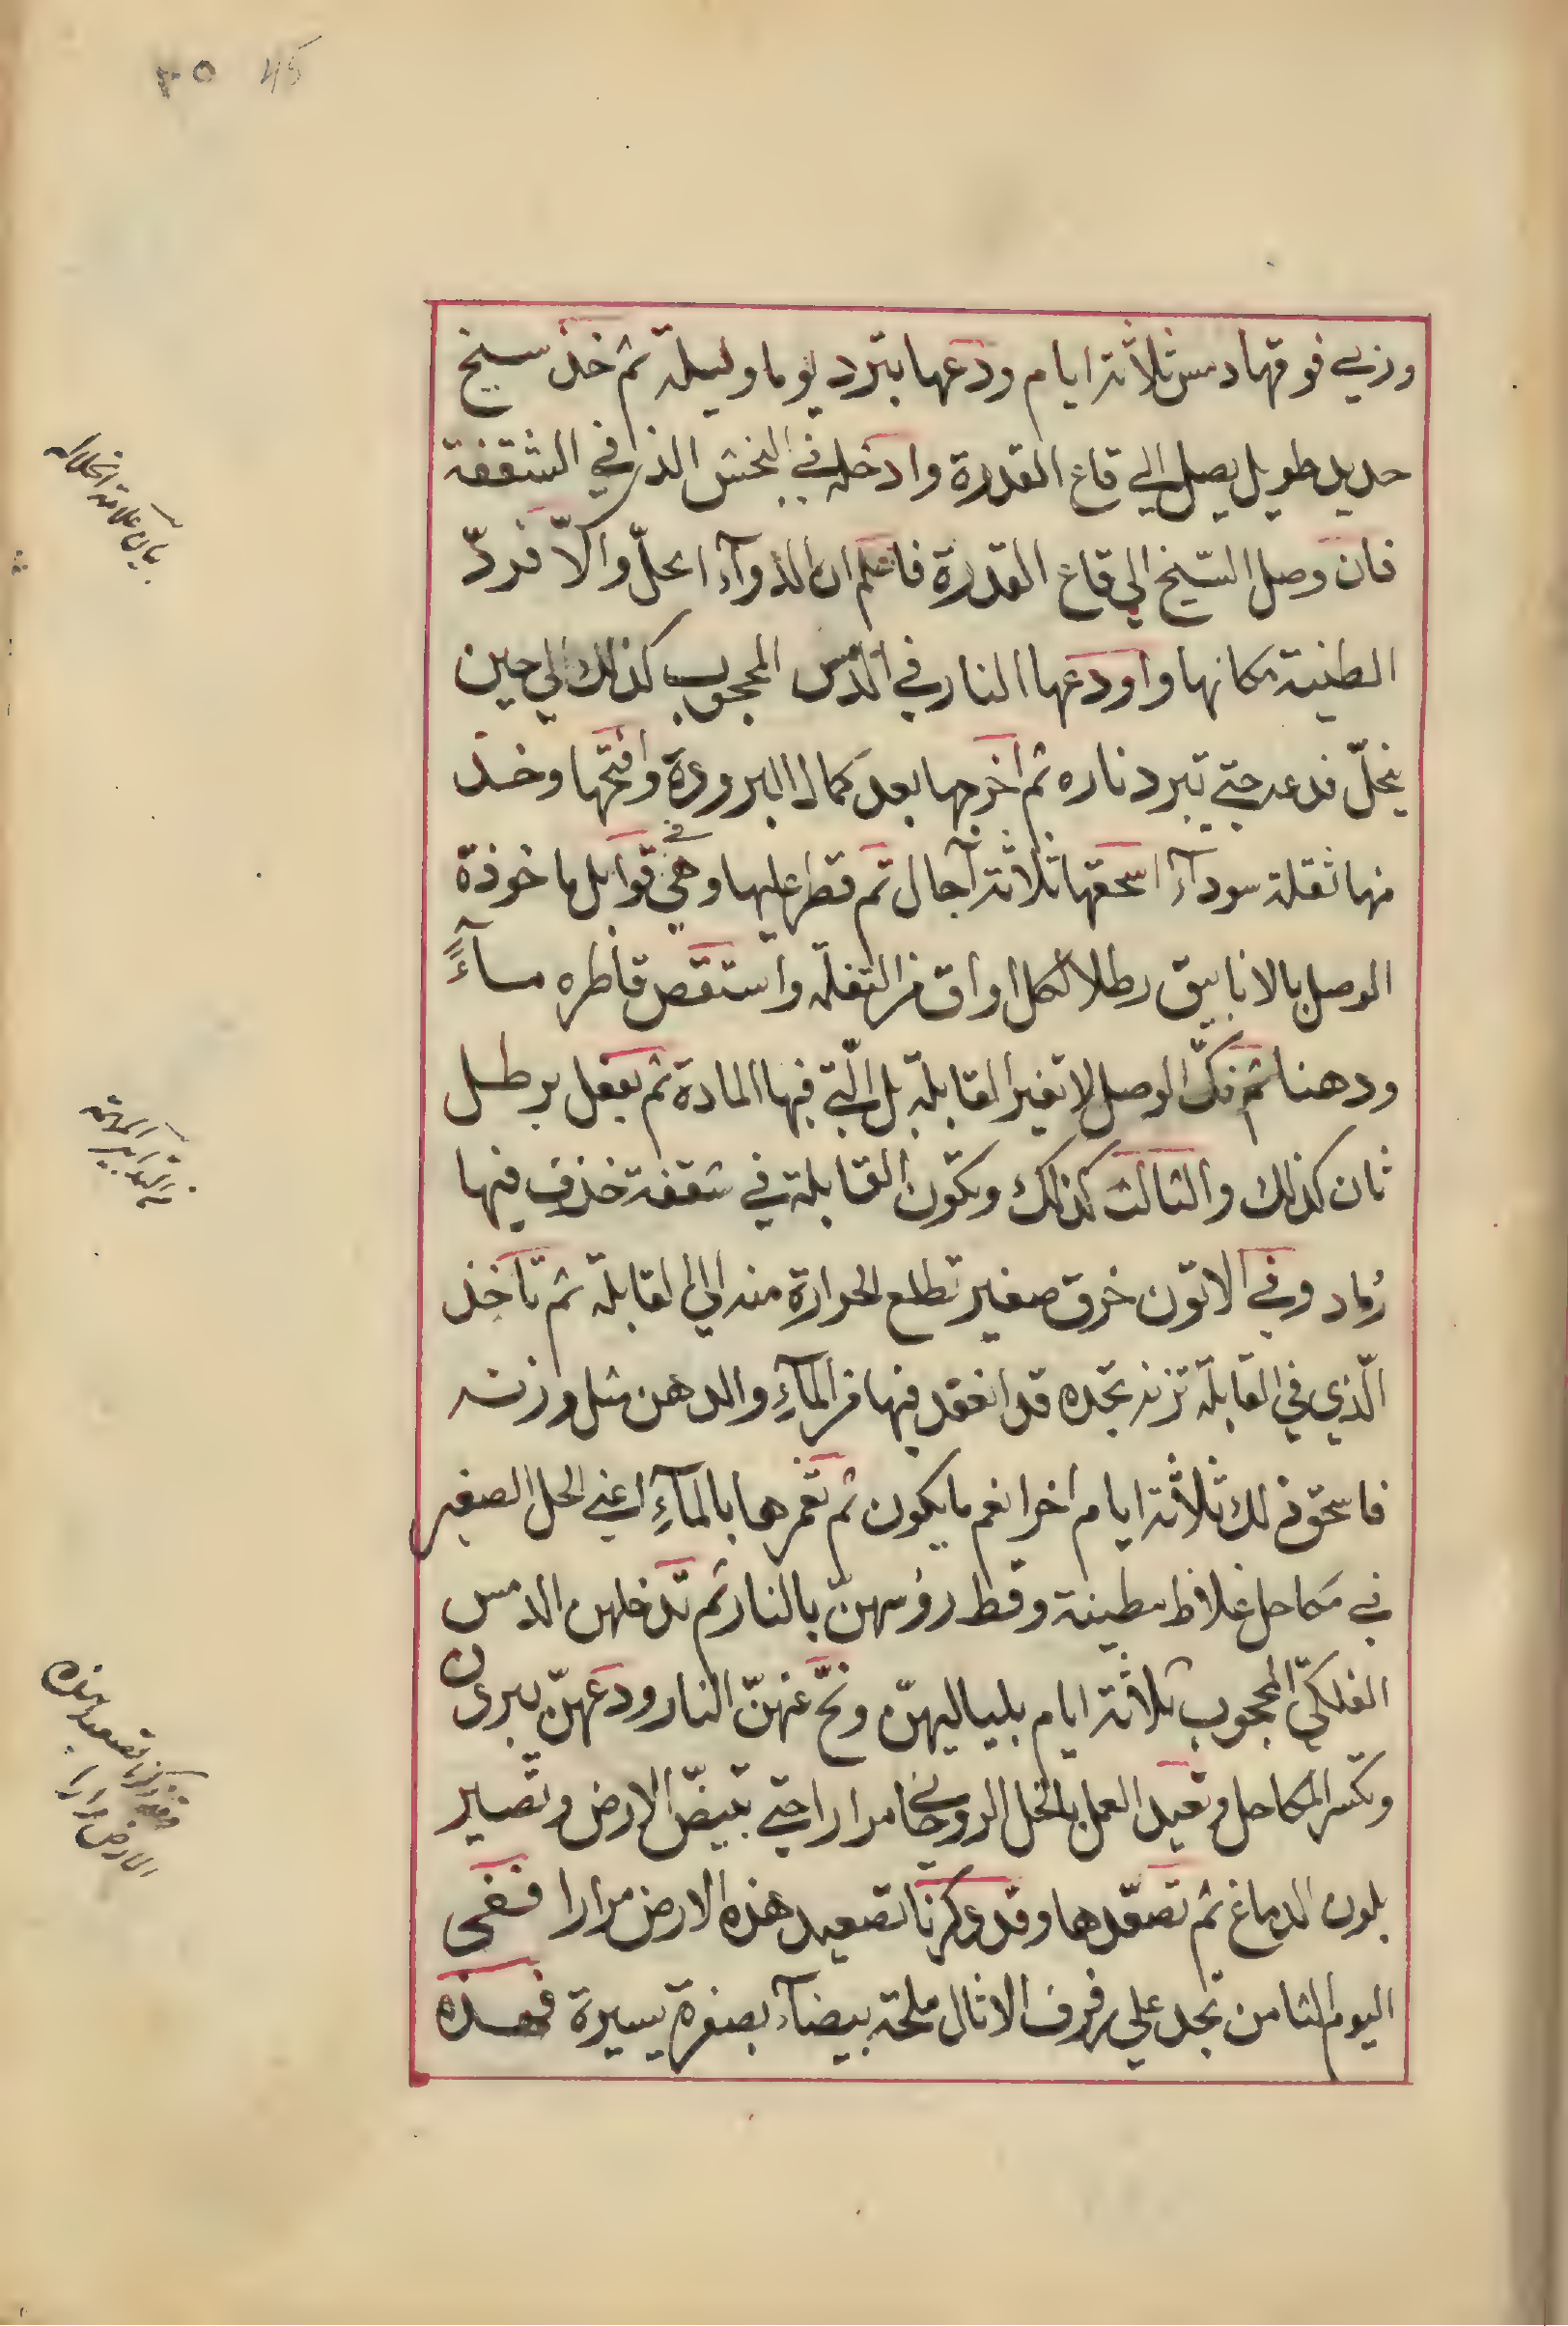 45
وزبي فوقها دمس ثلاثة ايام ودعها تبرد يوما وليلة ثم خذ سيخ
حديد طويل يصل الي قاع القدرة وادخله في البخش الذي في الشقفة
فان وصل السيخ الي قاع القدرة فاعلم ان الدوآء انحلّ والّا فردّ
الطنية مكانها واودعها النار في الدمس المحجوب كذلك الي حين
ينحلّ فدعه حتي تبرد ناره ثم اخرجها بعد كمال البرودة وافتحها وخذ
منها ثقلة سودآء اسحقها ثلاثة آجال ثم قطر عليها وهي في قوابل ماخوذة
الوصل بالانابيق رطلا لكل اواق من التفلة واستقص قاطره مآءً
ودهنا ثم فكّ الوصل لا تغير القابلة بل الّتي فيها المادة ثم تفعل برطل
ثان كذلك والثالث كذلك وتكون القابلة في شقفة خذف فيها
رماد وفي الاتون خرق صغير تطلع الحرارة منه الي القابلة ثم تاخذ
الّذي في القابلة تزنه تجده قد انعقد فيها من المآءِ والدهن مثل وزنه
فاسحق ذلك ثلاثة ايام اخر انعم ما يكون ثم تغمرها بالمآءِ اعني الحل الصغير
في مكاحل غلاظ مطينة وقط رؤسهنّ بالنار ثم تدخلهن الدمس
الفلكيّ المحجوب ثلاثة ايام بلياليهنّ ونحّ عنهنّ النار ودعهنّ يبردن
وتكسر المكاحل وتعيد العمل بالخل الروحاني مرارا حتي تبيضّ الارض وتصير
بلون الدماغ ثم تصعّدها وقد ذكرنا تصعيد هذه الارض مرارا ففي
اليوم الثامن تجد علي رفرف الاثال ملحة بيضآء بصفرة يسيرة فهذه
بيان علامة انحلاله
من التدابير المهمّة
وقد ذكرنا تصعيد هذه
الارض مرارا